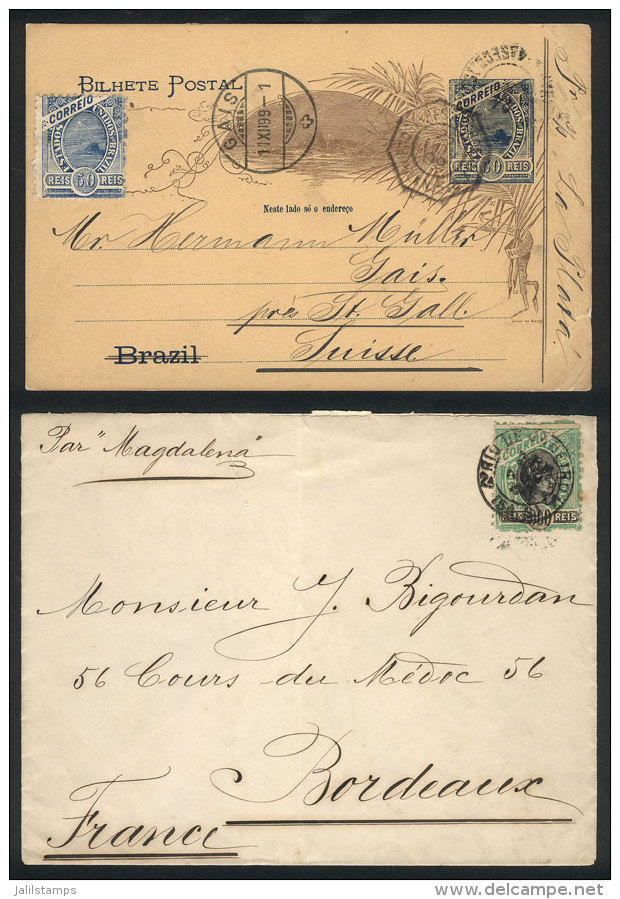 BILHETE POSTAL
CORREIO
ESTADOS UNIDOS DO BRAZIL
REIS 50 REIS
GAIS
11.XI.99.-1
CORREIO
REIS 50 REIS
Neste lado só o endereço
Mr. Hermann Müller
Gais.
près St. Gall.
Brazil
Suisse
La Plata.
Par "Magdalena"
CORREIO
REIS REIS
Monsieur J. Bigourdan
56 Cours du Médoc 56
Bordeaux
France
jalilstamps
delcampe.net